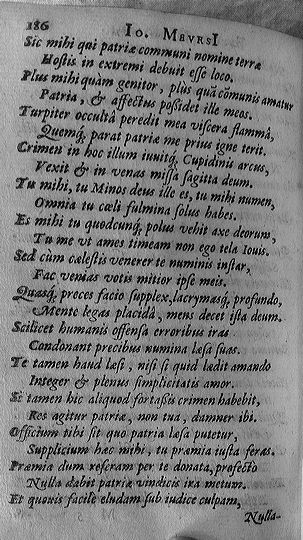 186 IO. MEVRSI
Sic mihi qui patriæ communi nomine terræ
Hostis in extremi debuit esse loco.
Plus mihi quàm genitor, plus quā cōmunis amatur
Patria, & affectus possidet ille meos.
Turpiter occultâ peredit mea viscera flammâ,
Quemq́; parat patriæ me prius igne terit.
Crimen in hoc illum iuuitq́; Cupidinis arcus,
Vexit & in venas missa sagitta deum.
Tu mihi, tu Minos deus ille es, tu mihi numen,
Omnia tu cœli fulmina solus habes.
Es mihi tu quodcunq́; polus vehit axe deorum,
Tu me vt ames timeam non ego tela Iouis.
Sed cùm cælestis venerer te numinis instar,
Fac venias votis mitior ipse meis.
Quasq́; preces facio supplex, lacrymasq́; profundo,
Mente legas placidâ, mens decet ista deum.
Scilicet humanis offensa erroribus iras
Condonant precibus numina læsa suas.
Te tamen haud læsi, nisi si quid lædit amando
Integer & plenus simplicitatis amor.
Si tamen hic aliquod fortassis crimen habebit,
Res agitur patriæ, non tua, damner ibi.
Officium tibi sit quo patria læsa putetur,
Supplicium hæc mihi, tu præmia iusta feras.
Præmia dum referam per te donata, profectò
Nulla dabit patriæ vindicis ira metum.
Et quouis facile eludam sub iudice culpam,
Nulla-